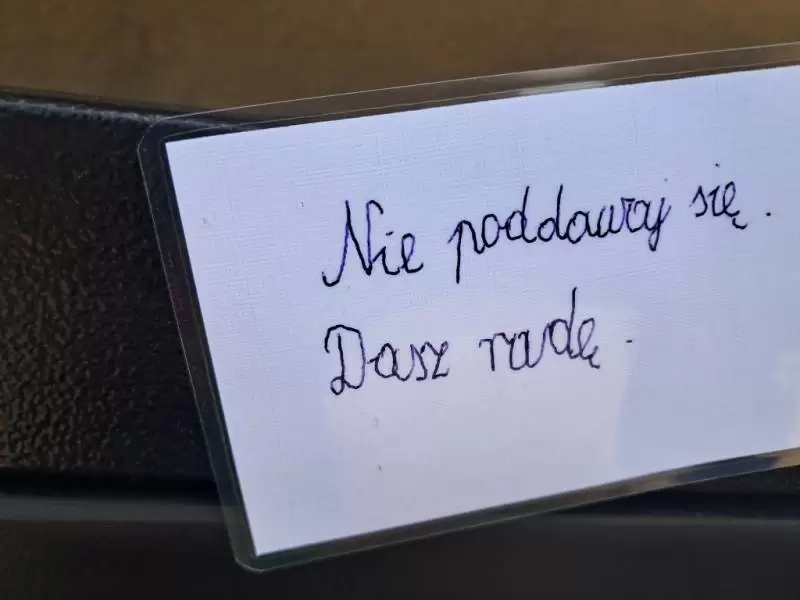 Nie poddaway się.
Dasz radę.